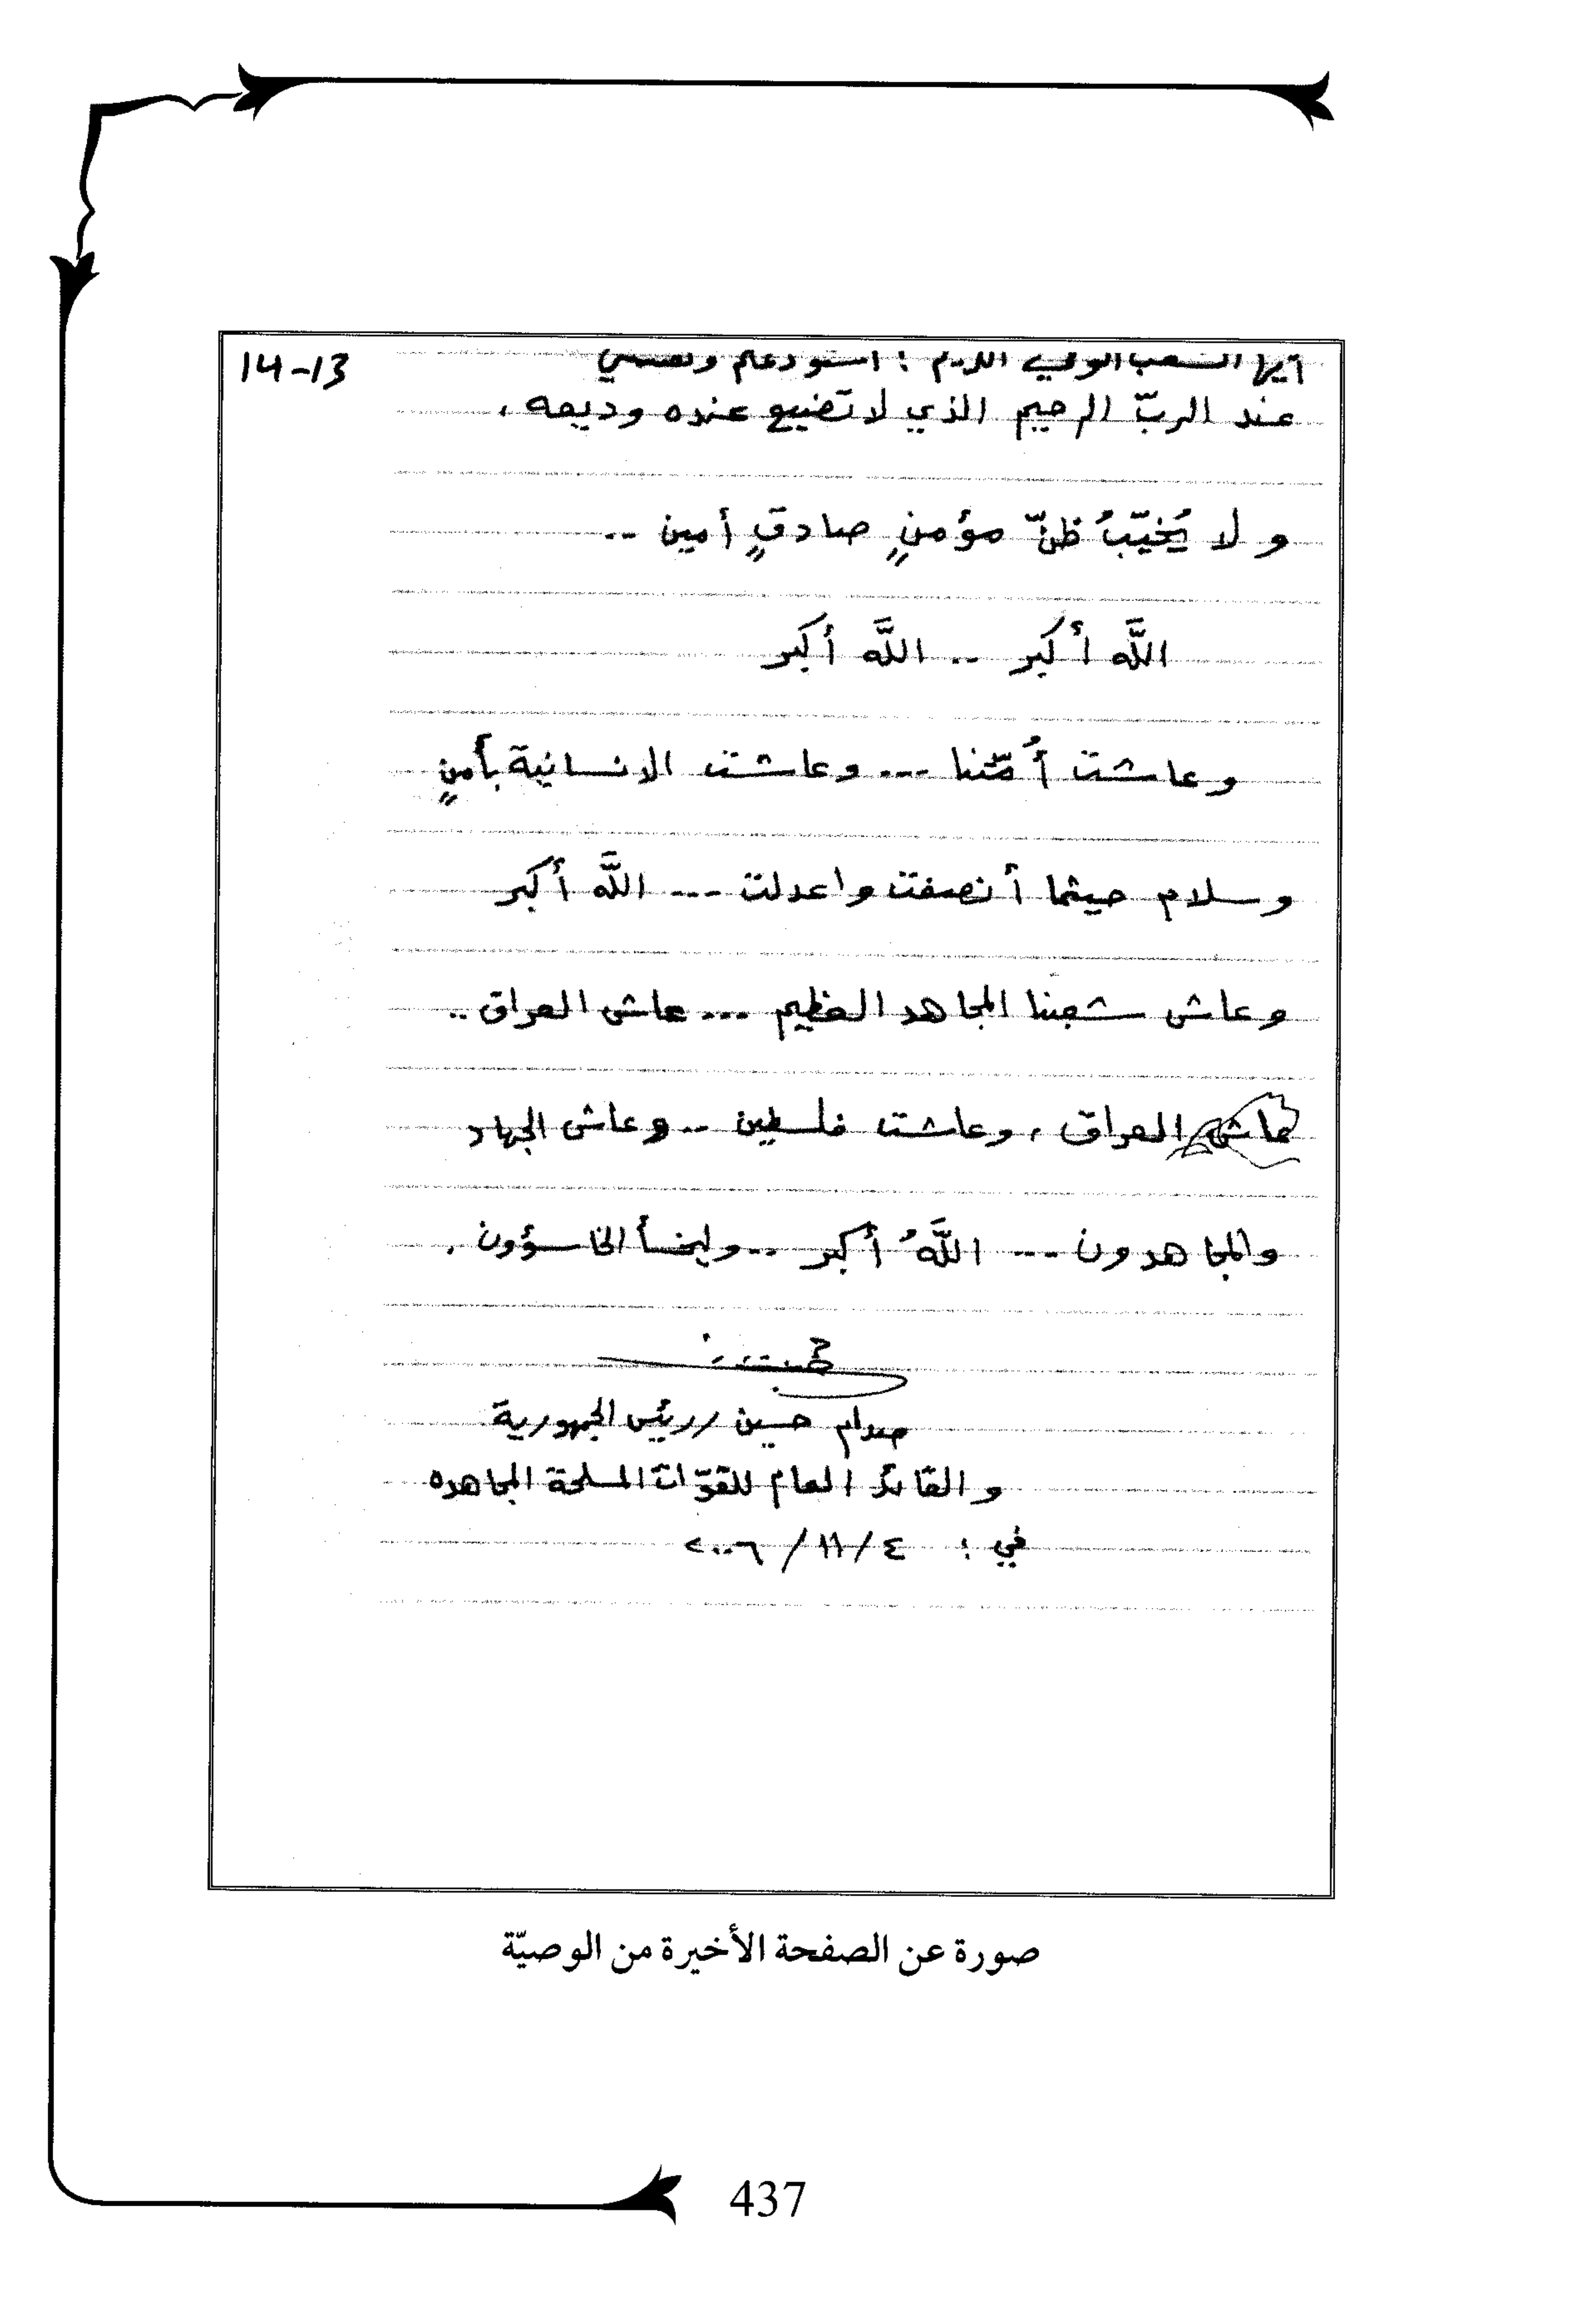 14-13
أيها الشعب الوفي الكريم : استودعكم ونفسي
عند الربّ الرحيم الذي لا تضيع عنده وديعه ،
و لا يُخيّبُ ظنّ مؤمنٍ صادقٍ أمين ..
اللَّه أكبر .. اللَّه أكبر
وعاشت أُمّتنا ... وعاشت الانسانية بأمنٍ
وسلام حيثما أنصفت واعدلت ... اللَّه أكبر
وعاش شعبنا المجاهد العظيم ... عاش العراق ..
عاش العراق ، وعاشت فلسطين .. وعاش الجهاد
والمجاهدون ... اللَّهُ أكبر .. وليخسأ الخاسؤون .
صدام حسين // رئيس الجمهورية
والقائد العام للقوّات المسلحة المجاهده
في : ٤ / ١١ / ٢٠٠٦
صورة عن الصفحة الأخيرة من الوصيّة
437